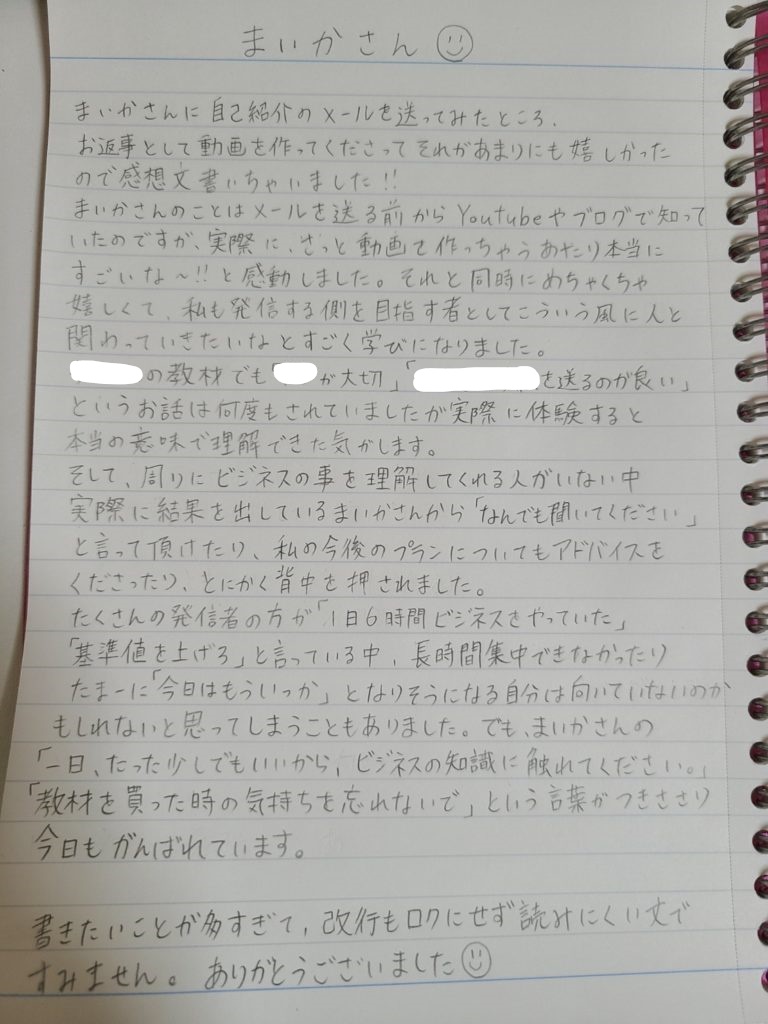 まいかさん☺
まいかさんに自己紹介のメールを送ってみたところ、
お返事として動画を作ってくださってそれがあまりにも嬉しかった
ので感想文書いちゃいました!!
まいかさんのことはメールを送る前からYoutubeやブログで知って
いたのですが、実際に、さっと動画を作っちゃうあたり本当に
すごいな〜!!と感動しました。それと同時にめちゃくちゃ
嬉しくて、私も発信する側を目指す者としてこういう風に人と
関わっていきたいなとすごく学びになりました。
の教材でも「が大切」「を送るのが良い」
というお話は何度もされていましたが実際に体験すると
本当の意味で理解できた気がします。
そして、周りにビジネスの事を理解してくれる人がいない中
実際に結果を出しているまいかさんから「なんでも聞いてください」
と言って頂けたり、私の今後のプランについてもアドバイスを
くださったり、とにかく背中を押されました。
たくさんの発信者の方が「1日6時間ビジネスをやっていた」
「基準値を上げろ」と言っている中、長時間集中できなかったり
たまーに「今日はもういっか」となりそうになる自分は向いていないのか
もしれないと思ってしまうこともありました。でも、まいかさんの
「一日、たった少しでもいいから、ビジネスの知識に触れてください。」
「教材を買った時の気持ちを忘れないで」という言葉がつきささり
今日もがんばれています。
書きたいことが多すぎて、改行もロクにせず読みにくい文で
すみません。ありがとうございました☺